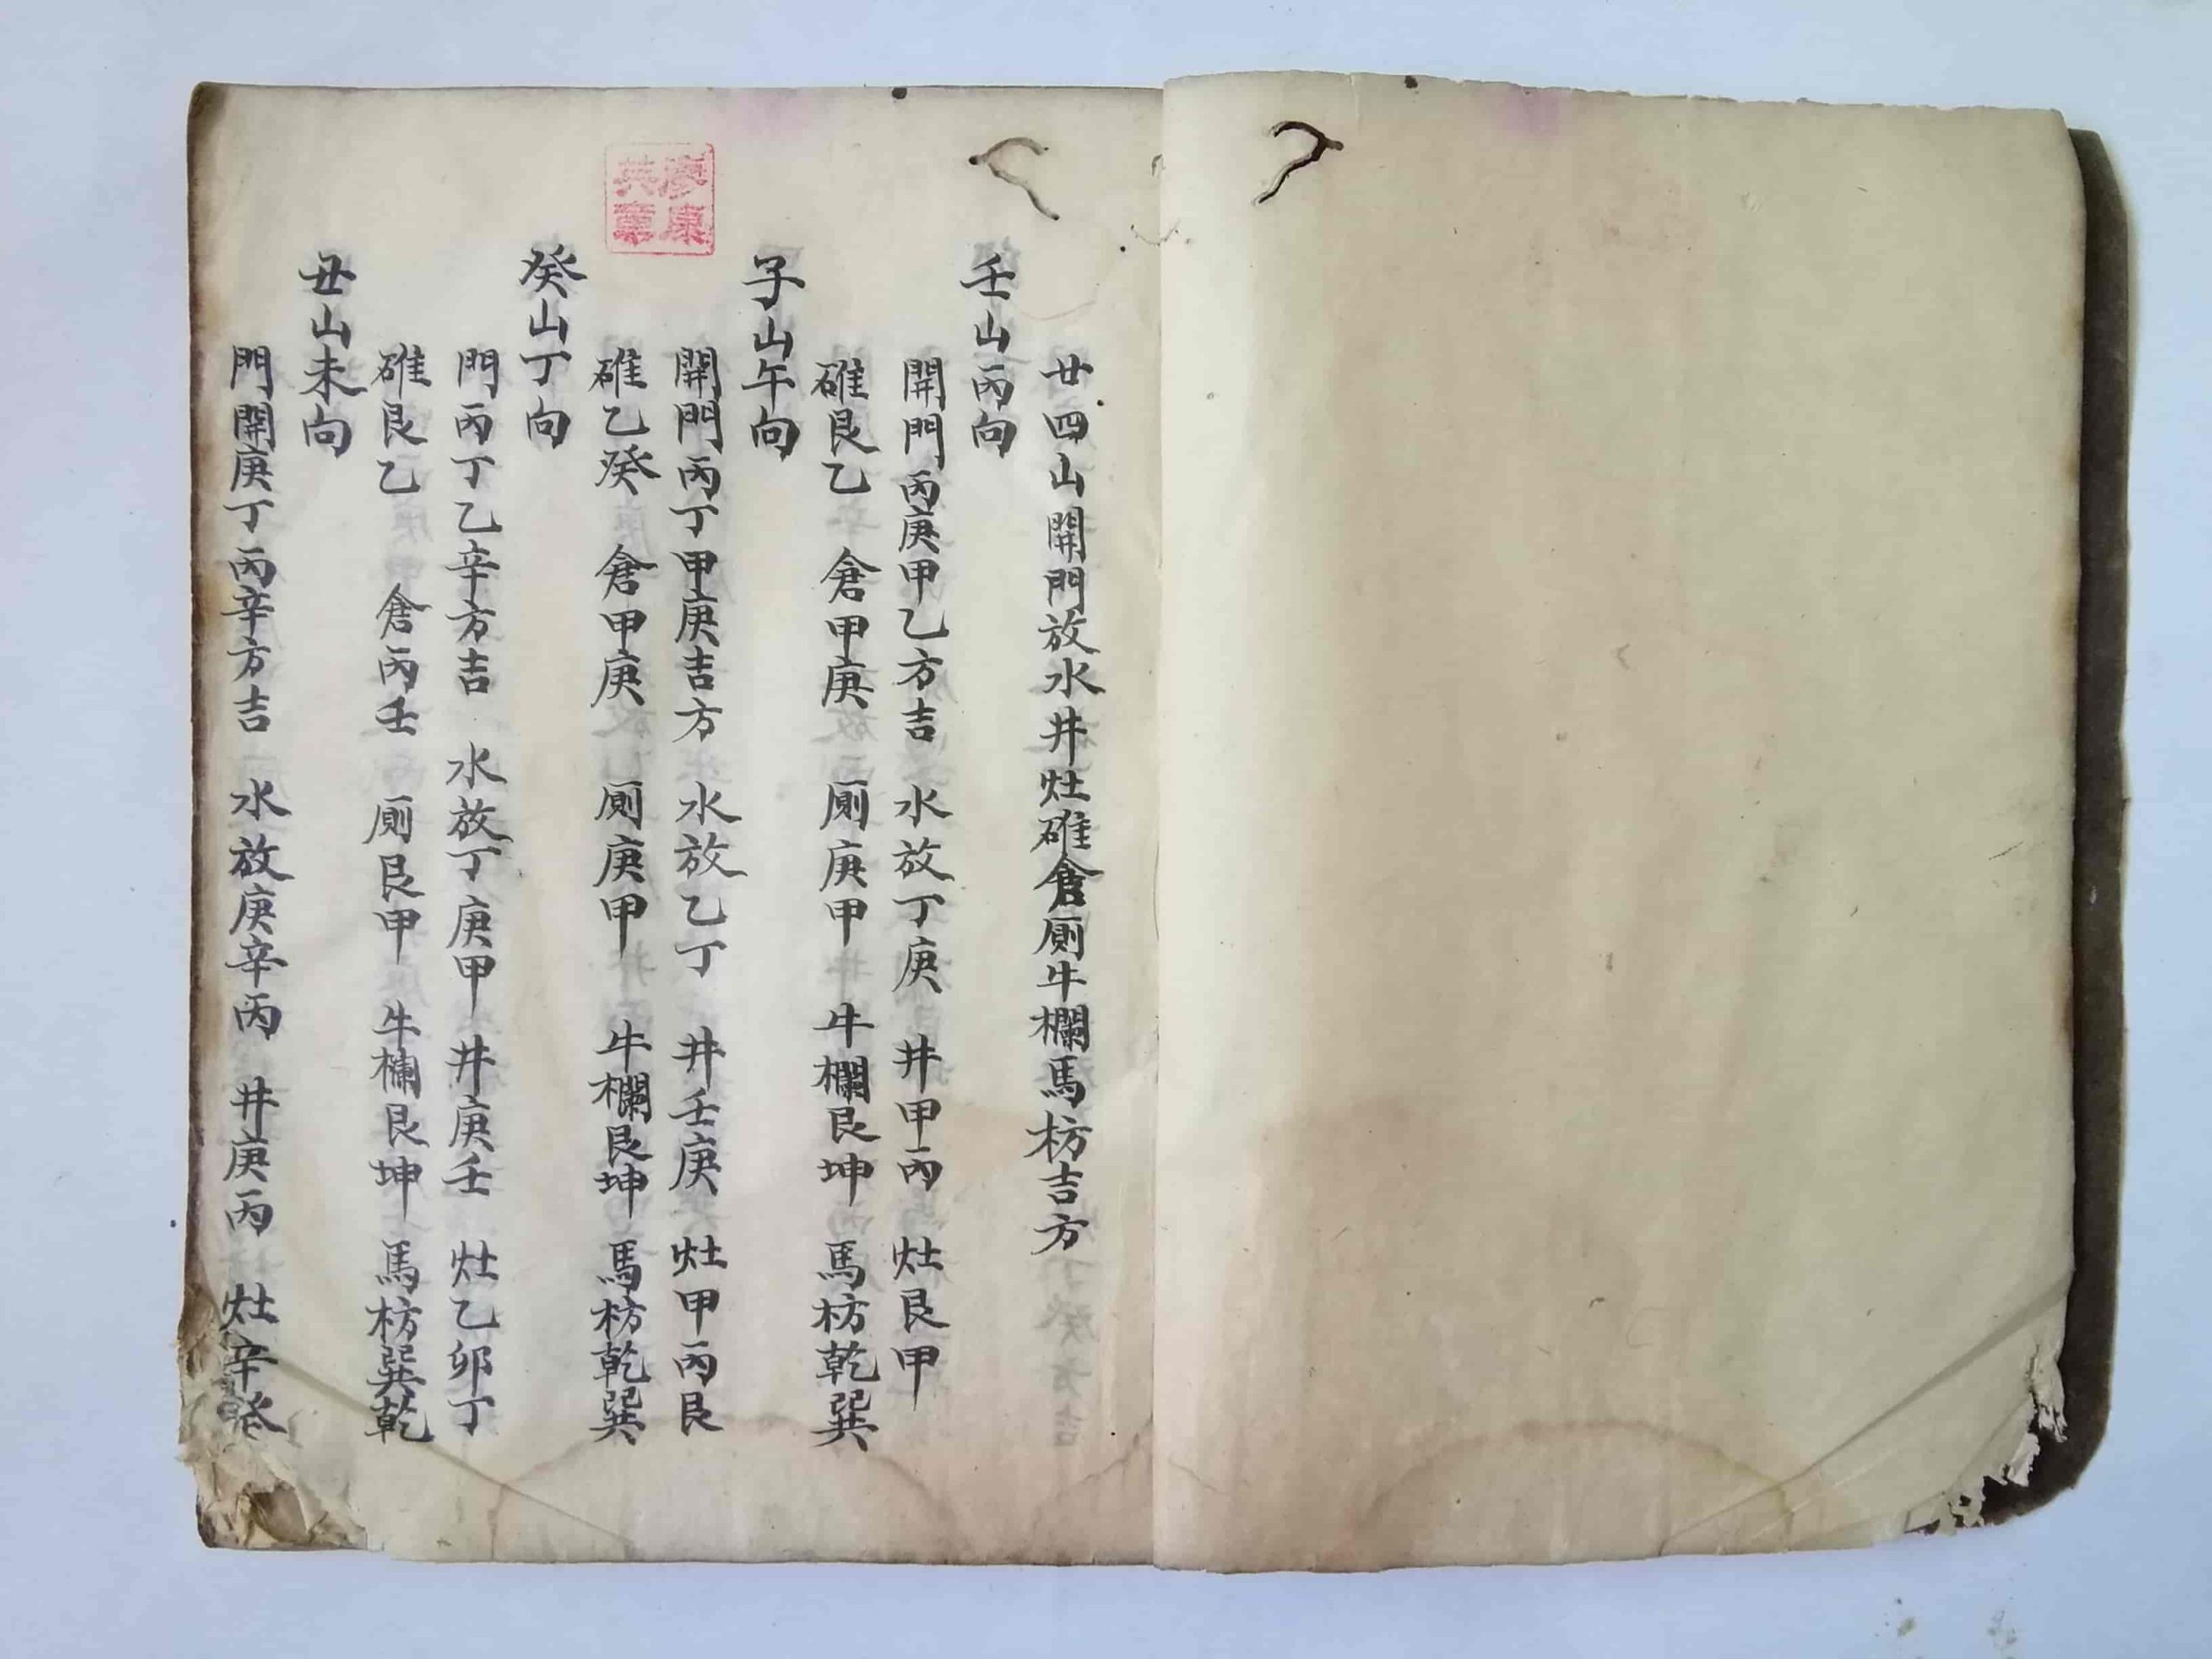 廿四山開門放水井灶碓倉厕牛欄馬枋吉方
壬山丙向
開門丙庚甲乙方吉 水放丁庚 井甲丙 灶艮甲
碓艮乙 倉甲庚 厕庚甲 牛欄艮坤 馬枋乾巽
子山午向
開門丙丁甲庚吉方 水放乙丁 井壬庚 灶甲丙艮
碓乙癸 倉甲庚 厕庚甲 牛欄艮坤 馬枋乾巽
癸山丁向
門丙丁乙辛方吉 水放丁庚甲 井庚壬 灶乙卯丁
碓艮乙 倉丙壬 厕艮甲 牛欄艮坤 馬枋巽乾
丑山未向
門開庚丁丙辛方吉 水放庚辛丙 井庚丙 灶辛癸
廖康
共